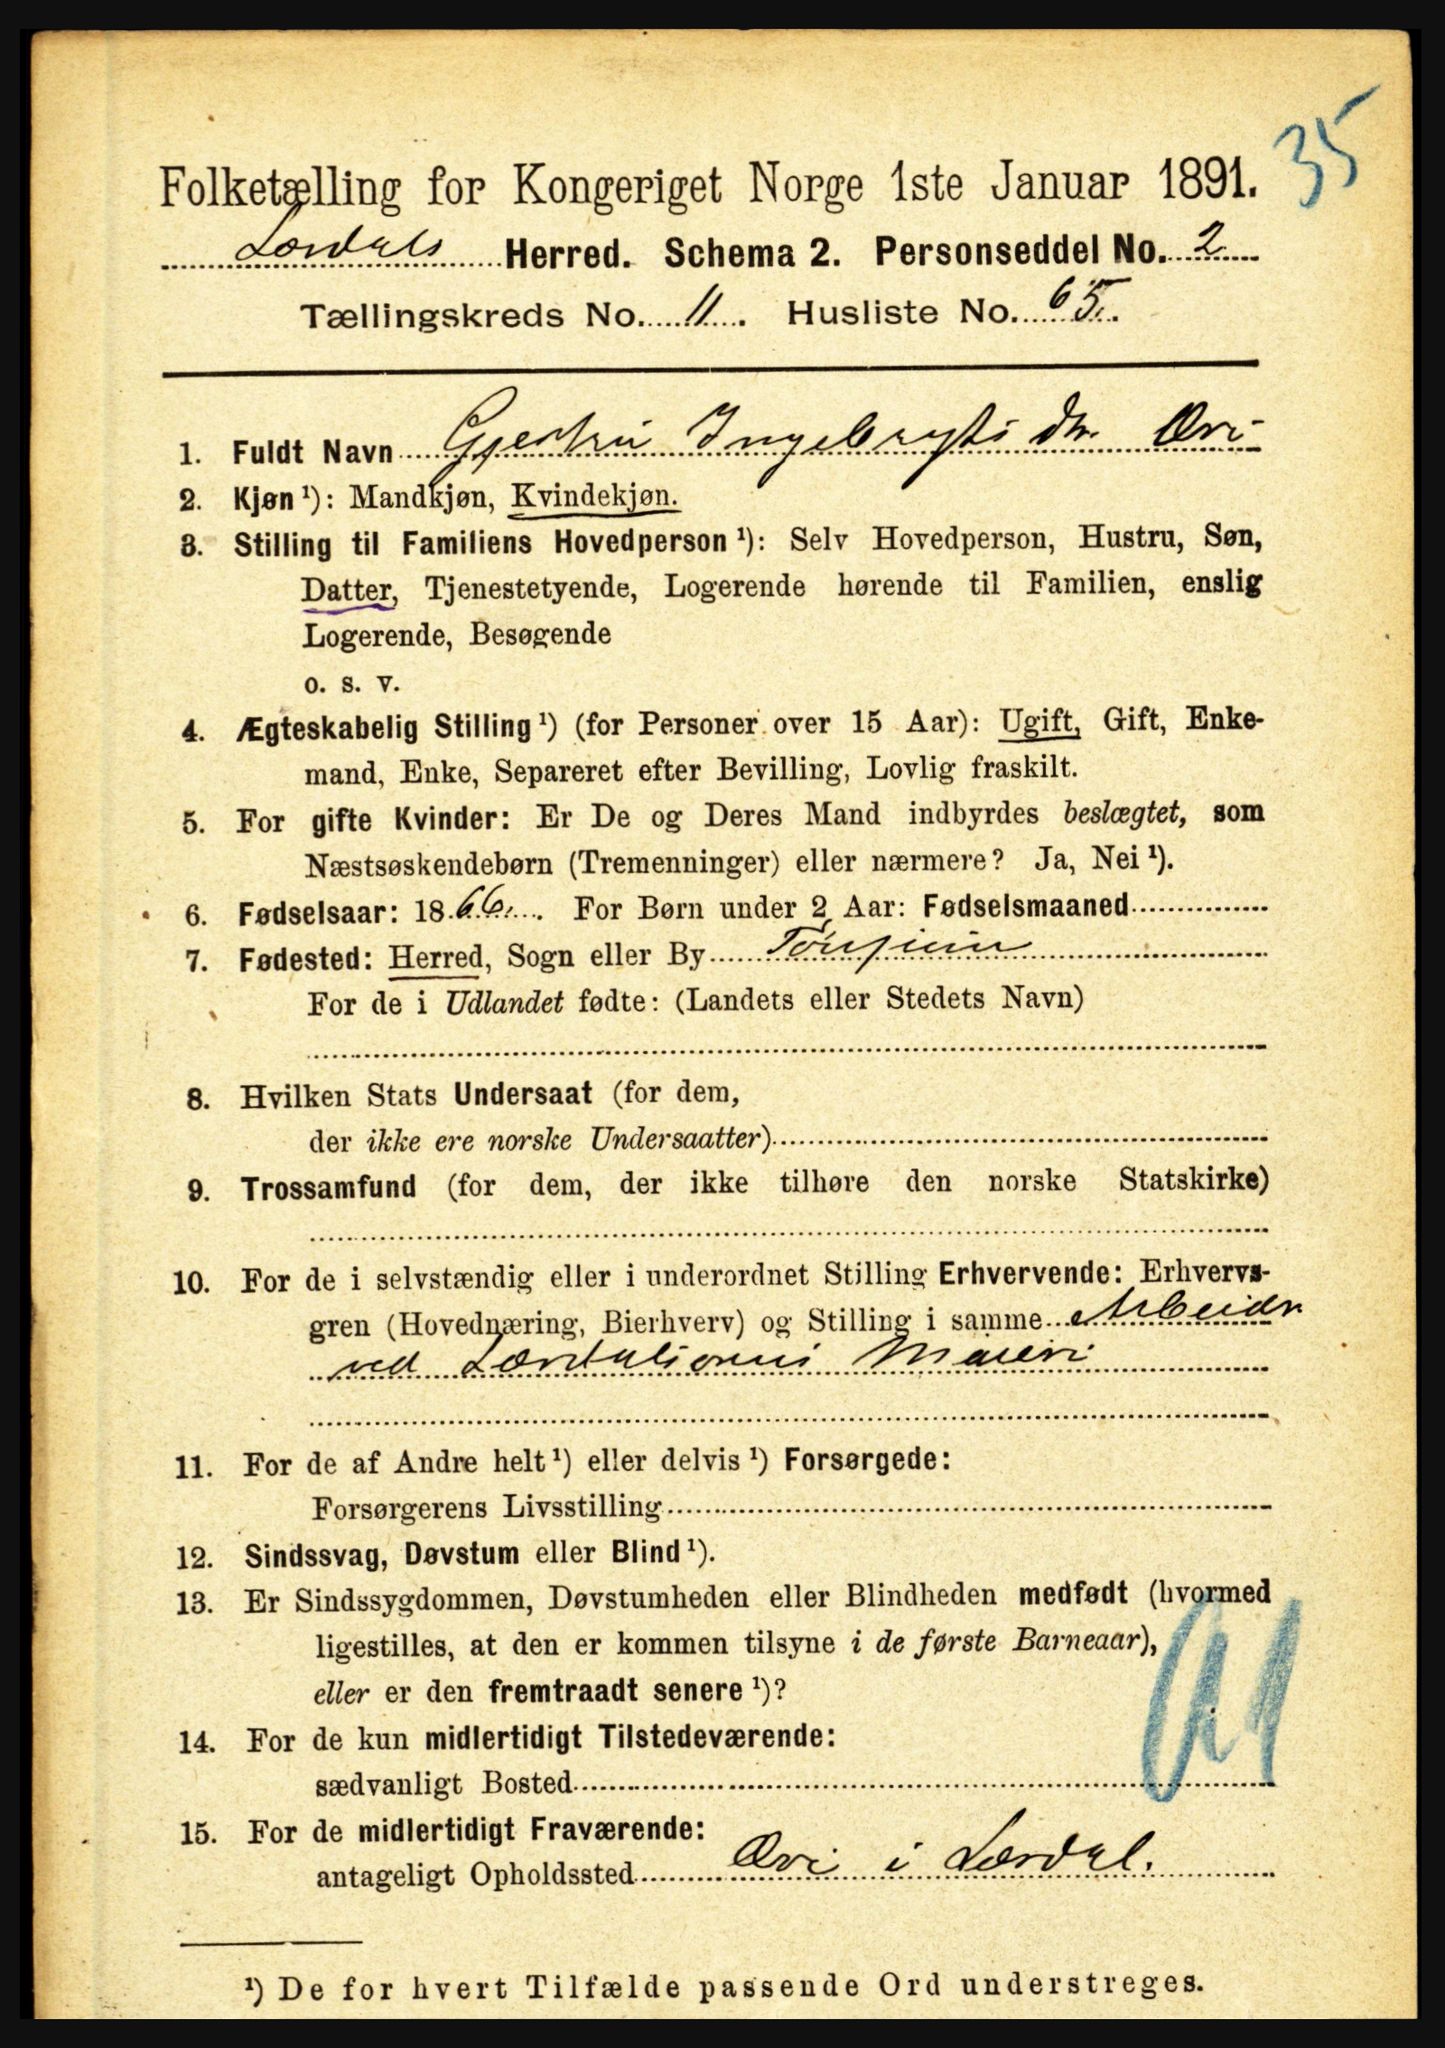 35
Folketælling for Kongeriget Norge 1ste Januar 1891.
Lærdals Herred. Schema 2. Personseddel No. 2
Tællingskreds No. 11. Husliste No. 65.
1. Fuldt Navn Gjertru Ingebrigts dtr. Øri
2. Kjøn ¹): Mandkjøn, Kvindekjøn.
3. Stilling til Familiens Hovedperson ¹): Selv Hovedperson, Hustru, Søn,
Datter, Tjenestetyende, Logerende hørende til Familien, enslig
Logerende, Besøgende
o. s. v.
4. Ægteskabelig Stilling ¹) (for Personer over 15 Aar): Ugift, Gift, Enke-
mand, Enke, Separeret efter Bevilling, Lovlig fraskilt.
5. For gifte Kvinder: Er De og Deres Mand indbyrdes beslægtet, som
Næstsøskendebørn (Tremenninger) eller nærmere? Ja, Nei ¹).
6. Fødselsaar: 1866. For Børn under 2 Aar: Fødselsmaaned
7. Fødested: Herred, Sogn eller By Tønjum
For de i Udlandet fødte: (Landets eller Stedets Navn)
8. Hvilken Stats Undersaat (for dem,
der ikke ere norske Undersaatter)
9. Trossamfund (for dem, der ikke tilhøre den norske Statskirke)
10. For de i selvstændig eller i underordnet Stilling Erhvervende: Erhvervs-
gren (Hovednæring, Bierhverv) og Stilling i samme Arbeider
ved Lærdalsørens Maieri
11. For de af Andre helt ¹) eller delvis ¹) Forsørgede:
Forsørgerens Livsstilling
12. Sindssvag, Døvstum eller Blind ¹).
13. Er Sindssygdommen, Døvstumheden eller Blindheden medfødt (hvormed
ligestilles, at den er kommen tilsyne i de første Barneaar),
eller er den fremtraadt senere ¹)?
14. For de kun midlertidigt Tilstedeværende:
sædvanligt Bosted
15. For de midlertidigt Fraværende:
antageligt Opholdssted Øri i Lærdal.
¹) De for hvert Tilfælde passende Ord understreges.